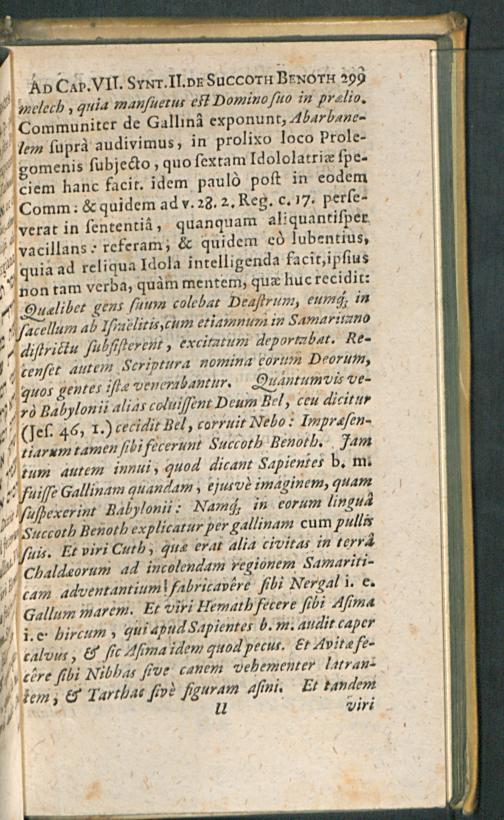 AD CAP. VII. SYNT. II. DE SUCCOTH BENOTH 299
melech, quia mansuetus est Domino suo in prælio.
Communiter de Gallinâ exponunt, Abarbane-
lem suprà audivimus, in prolixo loco Prole-
gomenis subjecto, quo sextam Idololatriæ spe-
ciem hanc facit. idem paulò post in eodem
Comm: & quidem ad v. 28. 2. Reg. c. 17. perse-
verat in sententiâ, quanquam aliquantisper
vacillans: referam; & quidem eò lubentius,
quia ad reliqua Idola intelligenda facit, ipsius
non tam verba, quàm mentem, quæ huc recidit:
Quælibet gens suum colebat Deastrum, eumq; in
sacellum ab Israëlitis, cum etiamnum in Samaritano
districtu subsisterent, excitatum deportabat. Re-
censet autem Scriptura nomina eorum Deorum,
quos gentes istæ venerabantur. Quantumvis ve-
rò Babylonii alias coluissent Deum Bel, ceu dicitur
(Jes. 46, 1.) cecidit Bel, corruit Nebo: Impræsen-
tiarum tamen sibi fecerunt Succoth Benoth. Jam
tum autem innui, quod dicant Sapientes b. m.
fuisse Gallinam quandam, ejusvè imaginem, quam
suspexerint Babylonii: Namq; in eorum linguâ
Succoth Benoth explicatur per gallinam cum pullis
suis. Et viri Cuth, quæ erat alia civitas in terrâ
Chaldæorum ad incolendam regionem Samariti-
cam adventantium! fabricavêre sibi Nergal i. e.
Gallum marem. Et viri Hemath fecere sibi Asima
i. e. hircum, qui apud Sapientes b. m. audit caper
calvus, & sic Asima idem quod pecus. Et Avitæ fe-
cêre sibi Nibhas sive canem vehementer latran-
tem; & Tarthac sivè figuram asini. Et tandem
U viri